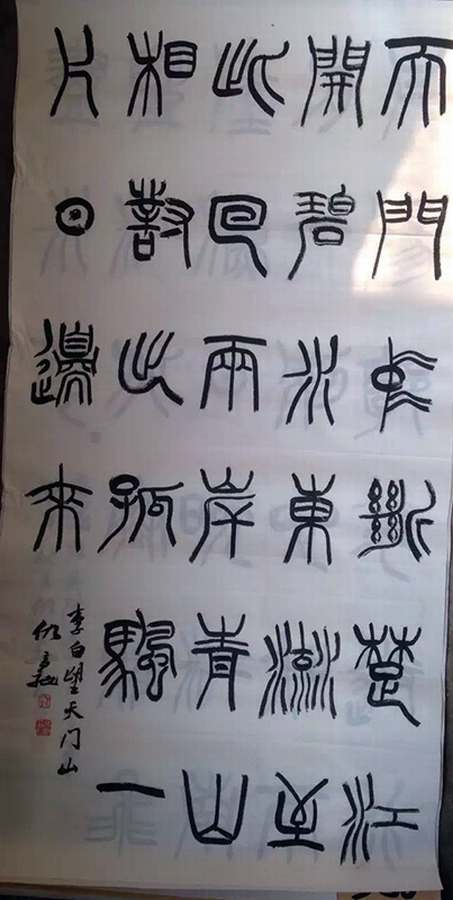 天門中斷楚江
開碧水東流至
此回兩岸青山
相對出孤颿一
片日邊來
李白望天门山